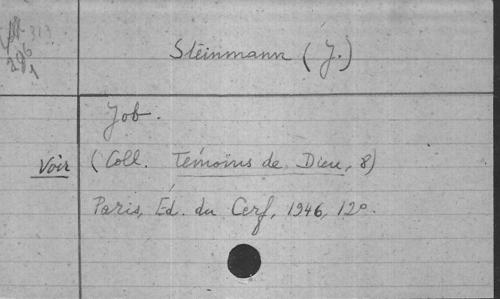 313
296
1
Steinmann (J.)
Job.
Voir
(Coll. Témoins de Dieu, 8)
Paris, Éd. du Cerf, 1946, 12º.